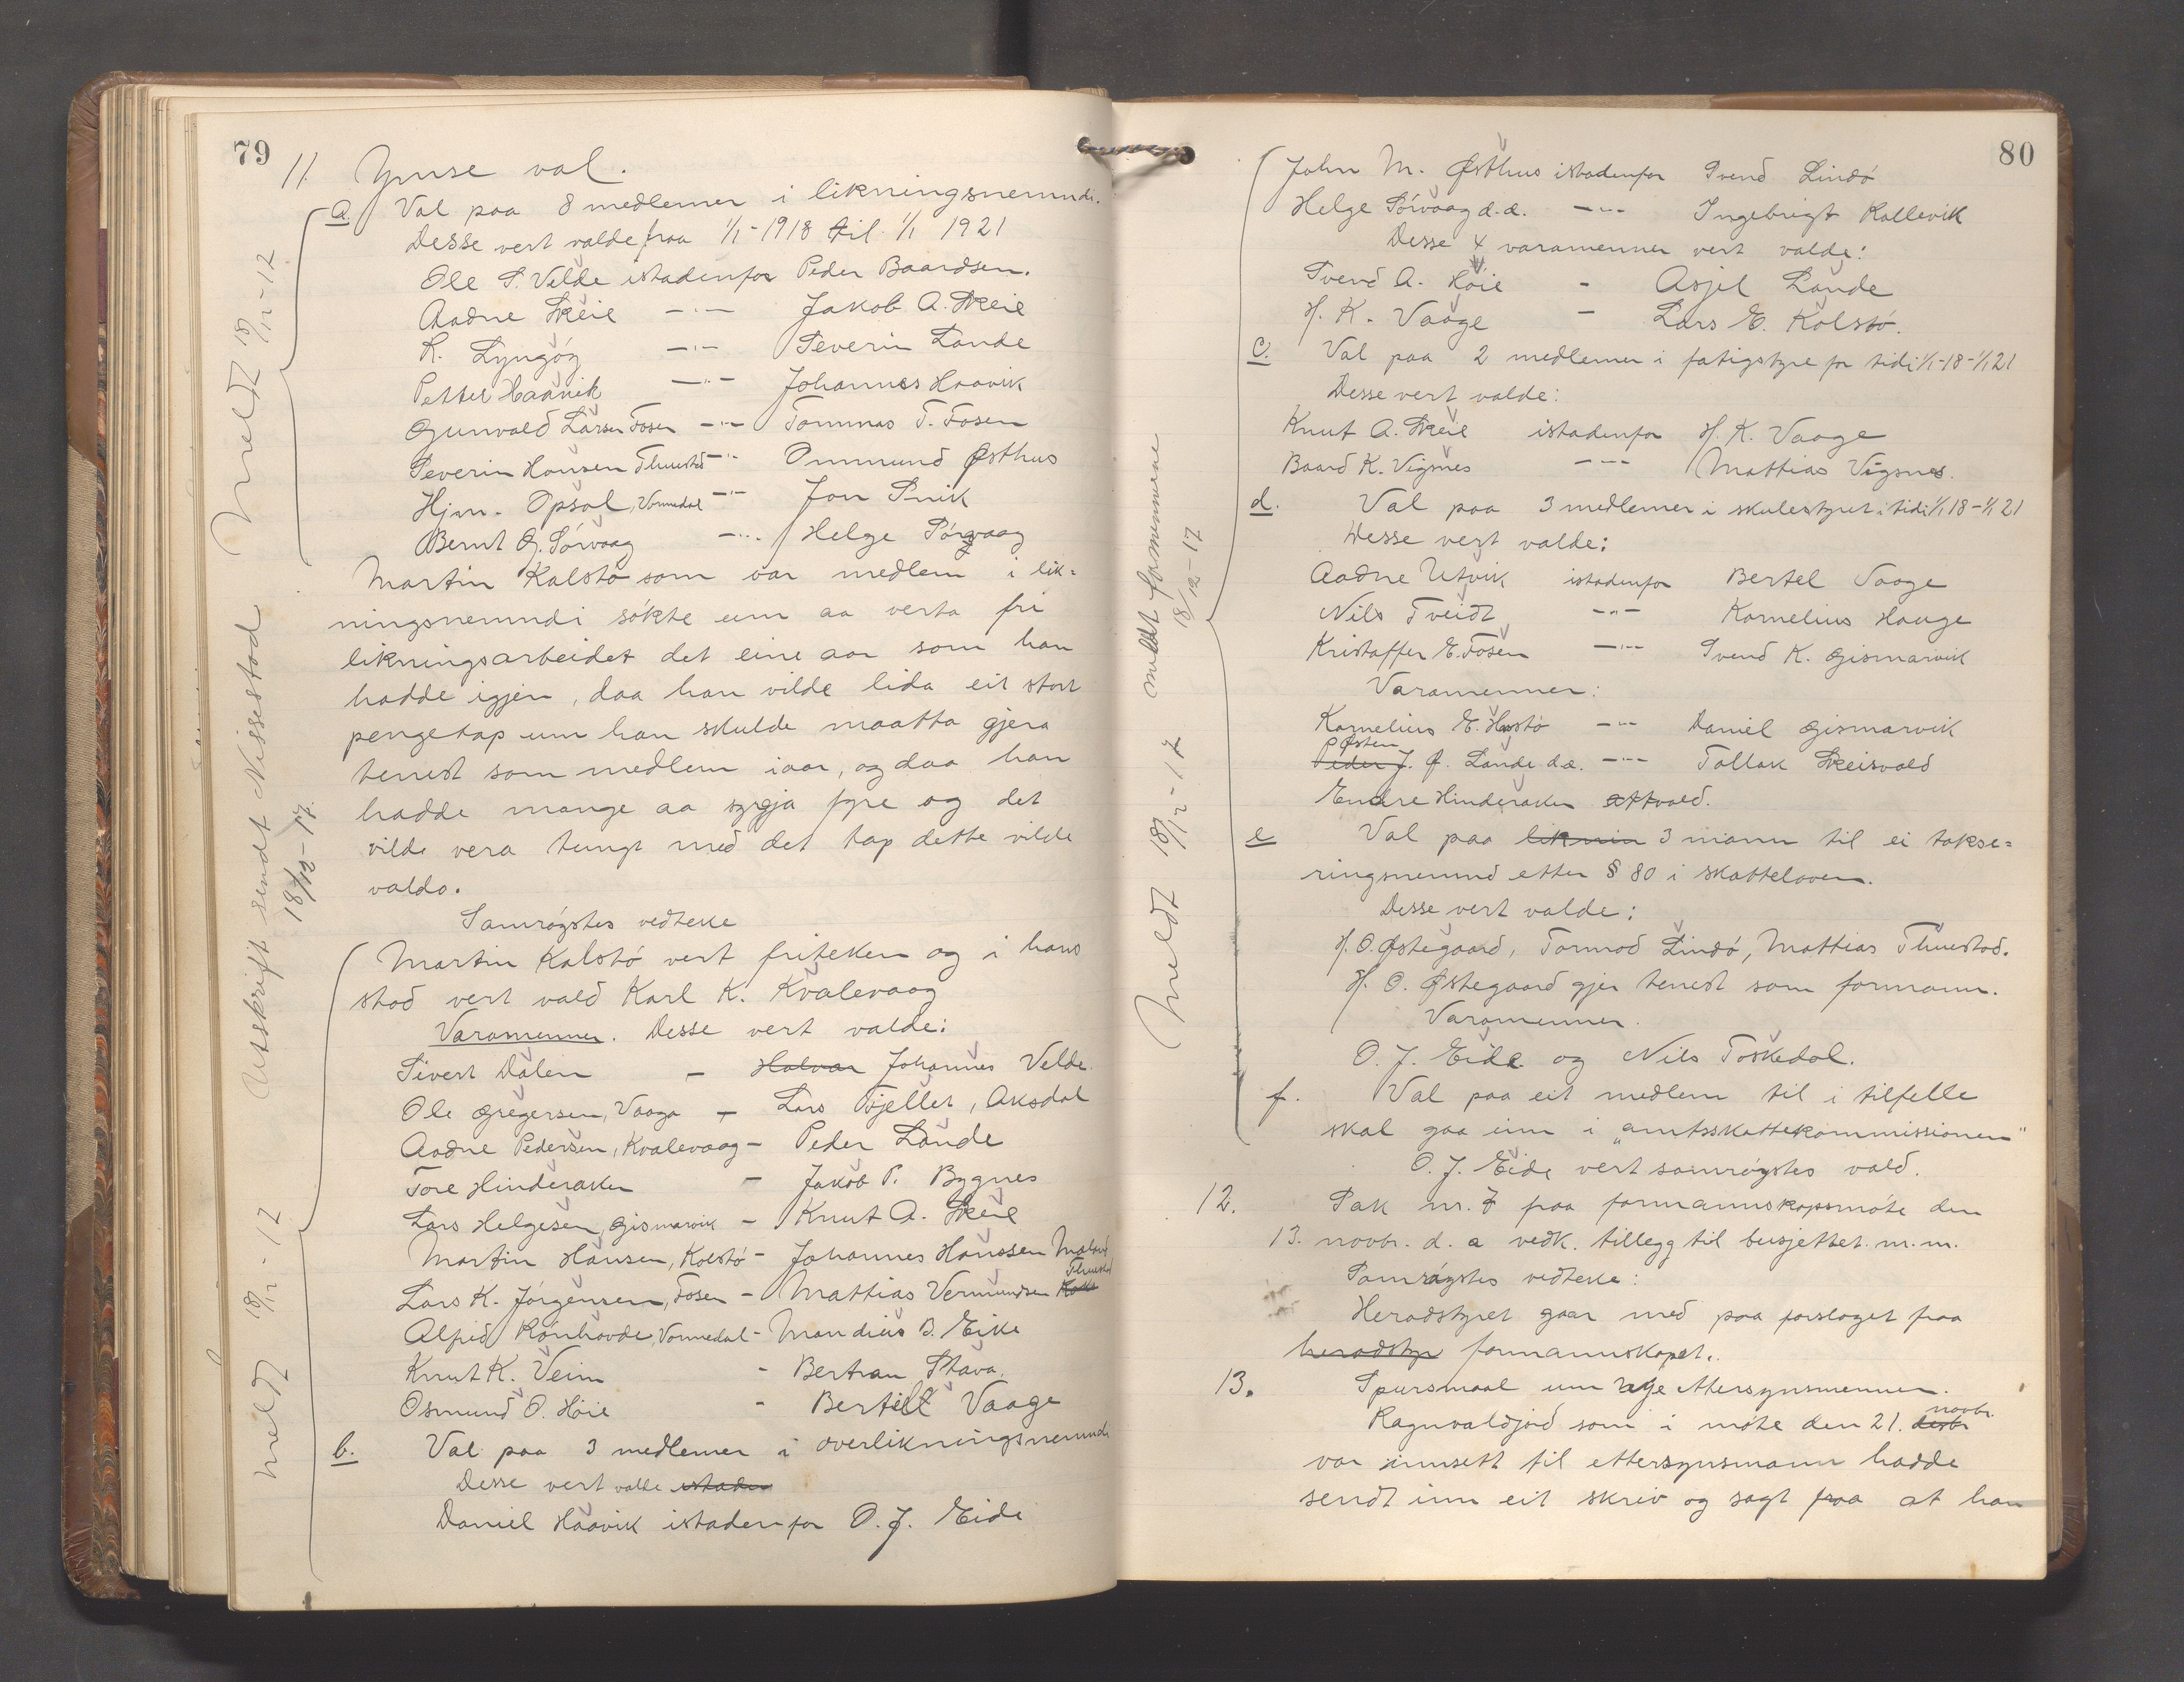 79
11. Ymse val.
a. Val paa 8 medlemer i likningsnemndi.
Desse vert valde fraa 1/1-1918 til 1/1 1921
Ole S. Velde istadenfor Peder Baardsen.
Aadne Skeie —"— Jakob A. Skeie
K. Lyngøy —"— Severin Lande
Petter Haavik —"— Johannes Haavik
Gunvald Larsen Fosen —"— Tommas T. Fosen
Severin Hansen Thuestad —"— Ommund Østhus
Hjm. Opsal, Vormedal —"— Jon Snik
Bernt G. Sørvaag —"— Helge Sørvaag
Martin Kalstø som var medlem i lik=
ningsnemndi søkte um aa verta fri
likningsarbeidet det eine aar som han
hadde igjen, daa han vilde lida eit stort
pengetap um han skulde maatta gjera
tenest som medlem iaar, og daa han
hadde mange aa syrgja fyre og det
vilde vera tungt med det tap dette vilde
valda.
Samrøystes vedteke
Martin Kalstø vert friteken og i hans
stad vert vald Karl K. Kvalevaag
Varamenner. Desse vert valde:
Sivert Dalen – Halvar Johannes Velde
Ole Gregersen, Vaaga – Lars Fjellet, Aksdal
Aadne Pedersen, Kvalevaag – Peder Lande
Tore Hinderaker – Jakob P. Bygnes
Lars Helgesen, Gismarvik – Knut A. Skeie
Martin Hansen, Kolstø – Johannes Hanssen
Lars K. Jørgensen, Fosen – Mattias Vermundsen Thuestad
Alfred Rønhovde, Vormedal – Mandius B. Eike
Knut K. Veim – Bertran Stava
Osmund O. Høie – Bertelt Vaage
b. Val paa 3 medlemer i overlikningsnemndi
Desse vert valde istaden
Daniel Haavik istadenfor O. J. Eide
Meldt 18/12-17
Utskrift sendt Nissestad
18/12-17.
Meldt 18/12-17
80
John M. Østhus istadenfor Svend Lindø
Helge Sørvaag d.æ. —"— Ingebrigt Kallevik
Desse 4 varamenner vert valde:
Svend A. Høie – Asjel Lande
H. K. Vaage – Lars E. Kolstø.
c. Val paa 2 medlemer i fatigstyre for tidi 1/1-18-1/1 21
Desse vert valde:
Knut A. Skeie istadenfor H. K. Vaage
Baard K. Vigsnes —"— Mattias Vigsnes.
d. Val paa 3 medlemer i skulestyret i tidi 1/1 18-1/1 21
Desse vert valde:
Aadne Utvik istadenfor Bertel Vaage
Nils Tveidt —"— Kornelius Hauge
Kristaffer E. Fosen —"— Svend K. Gismarvik
Varamenner:
Kornelius E. Høstø —"— Daniel Gismarvik
Østen
Peder J. Ø. Lande d.æ. —"— Tollak Skeisvold
Endre Hinderaker attvald.
e Val paa liknin 3 mann til ei takse=
ringsnemnd etter § 80 i skatteloven.
Desse vert valde:
H. O. Østegaard, Tormod Lindø, Mattias Thuestad.
H. O. Østegaard gjer tenest som formann.
Varamenner.
O. J. Eide og Nils Toskedal.
f. Val paa eit medlem til i tilfelle
skal gaa inn i „amtsskattekommissionen"
O. J. Eide vert samrøystes vald.
12. Sak nr. 7 paa formannskapsmøte den
13. novbr. d. a vedk. tillegg til busjettet m.m.
Samrøystes vedteke:
Heradstyret gaar med paa forslaget fraa
heradstyr formannskapet.
13. Spursmaal um nye ettersynsmenner.
novbr.
Ragnvaldjord som i møte den 21. desbr
var innsett til ettersynsmann hadde
sendt inn eit skriv og sagt fraa at han
meldt formennene
18/12-17
Meldt 18/12-17